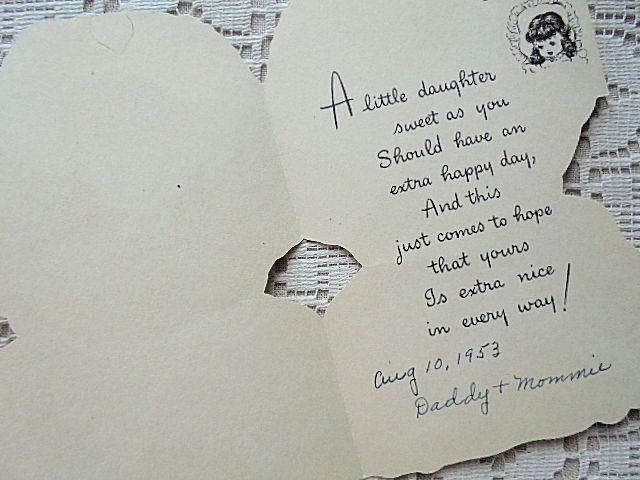 A little daughter
sweet as you
Should have an
extra happy day,
And this
just comes to hope
that yours
Is extra nice
in every way!
Aug 10, 1953
Daddy + Mommie